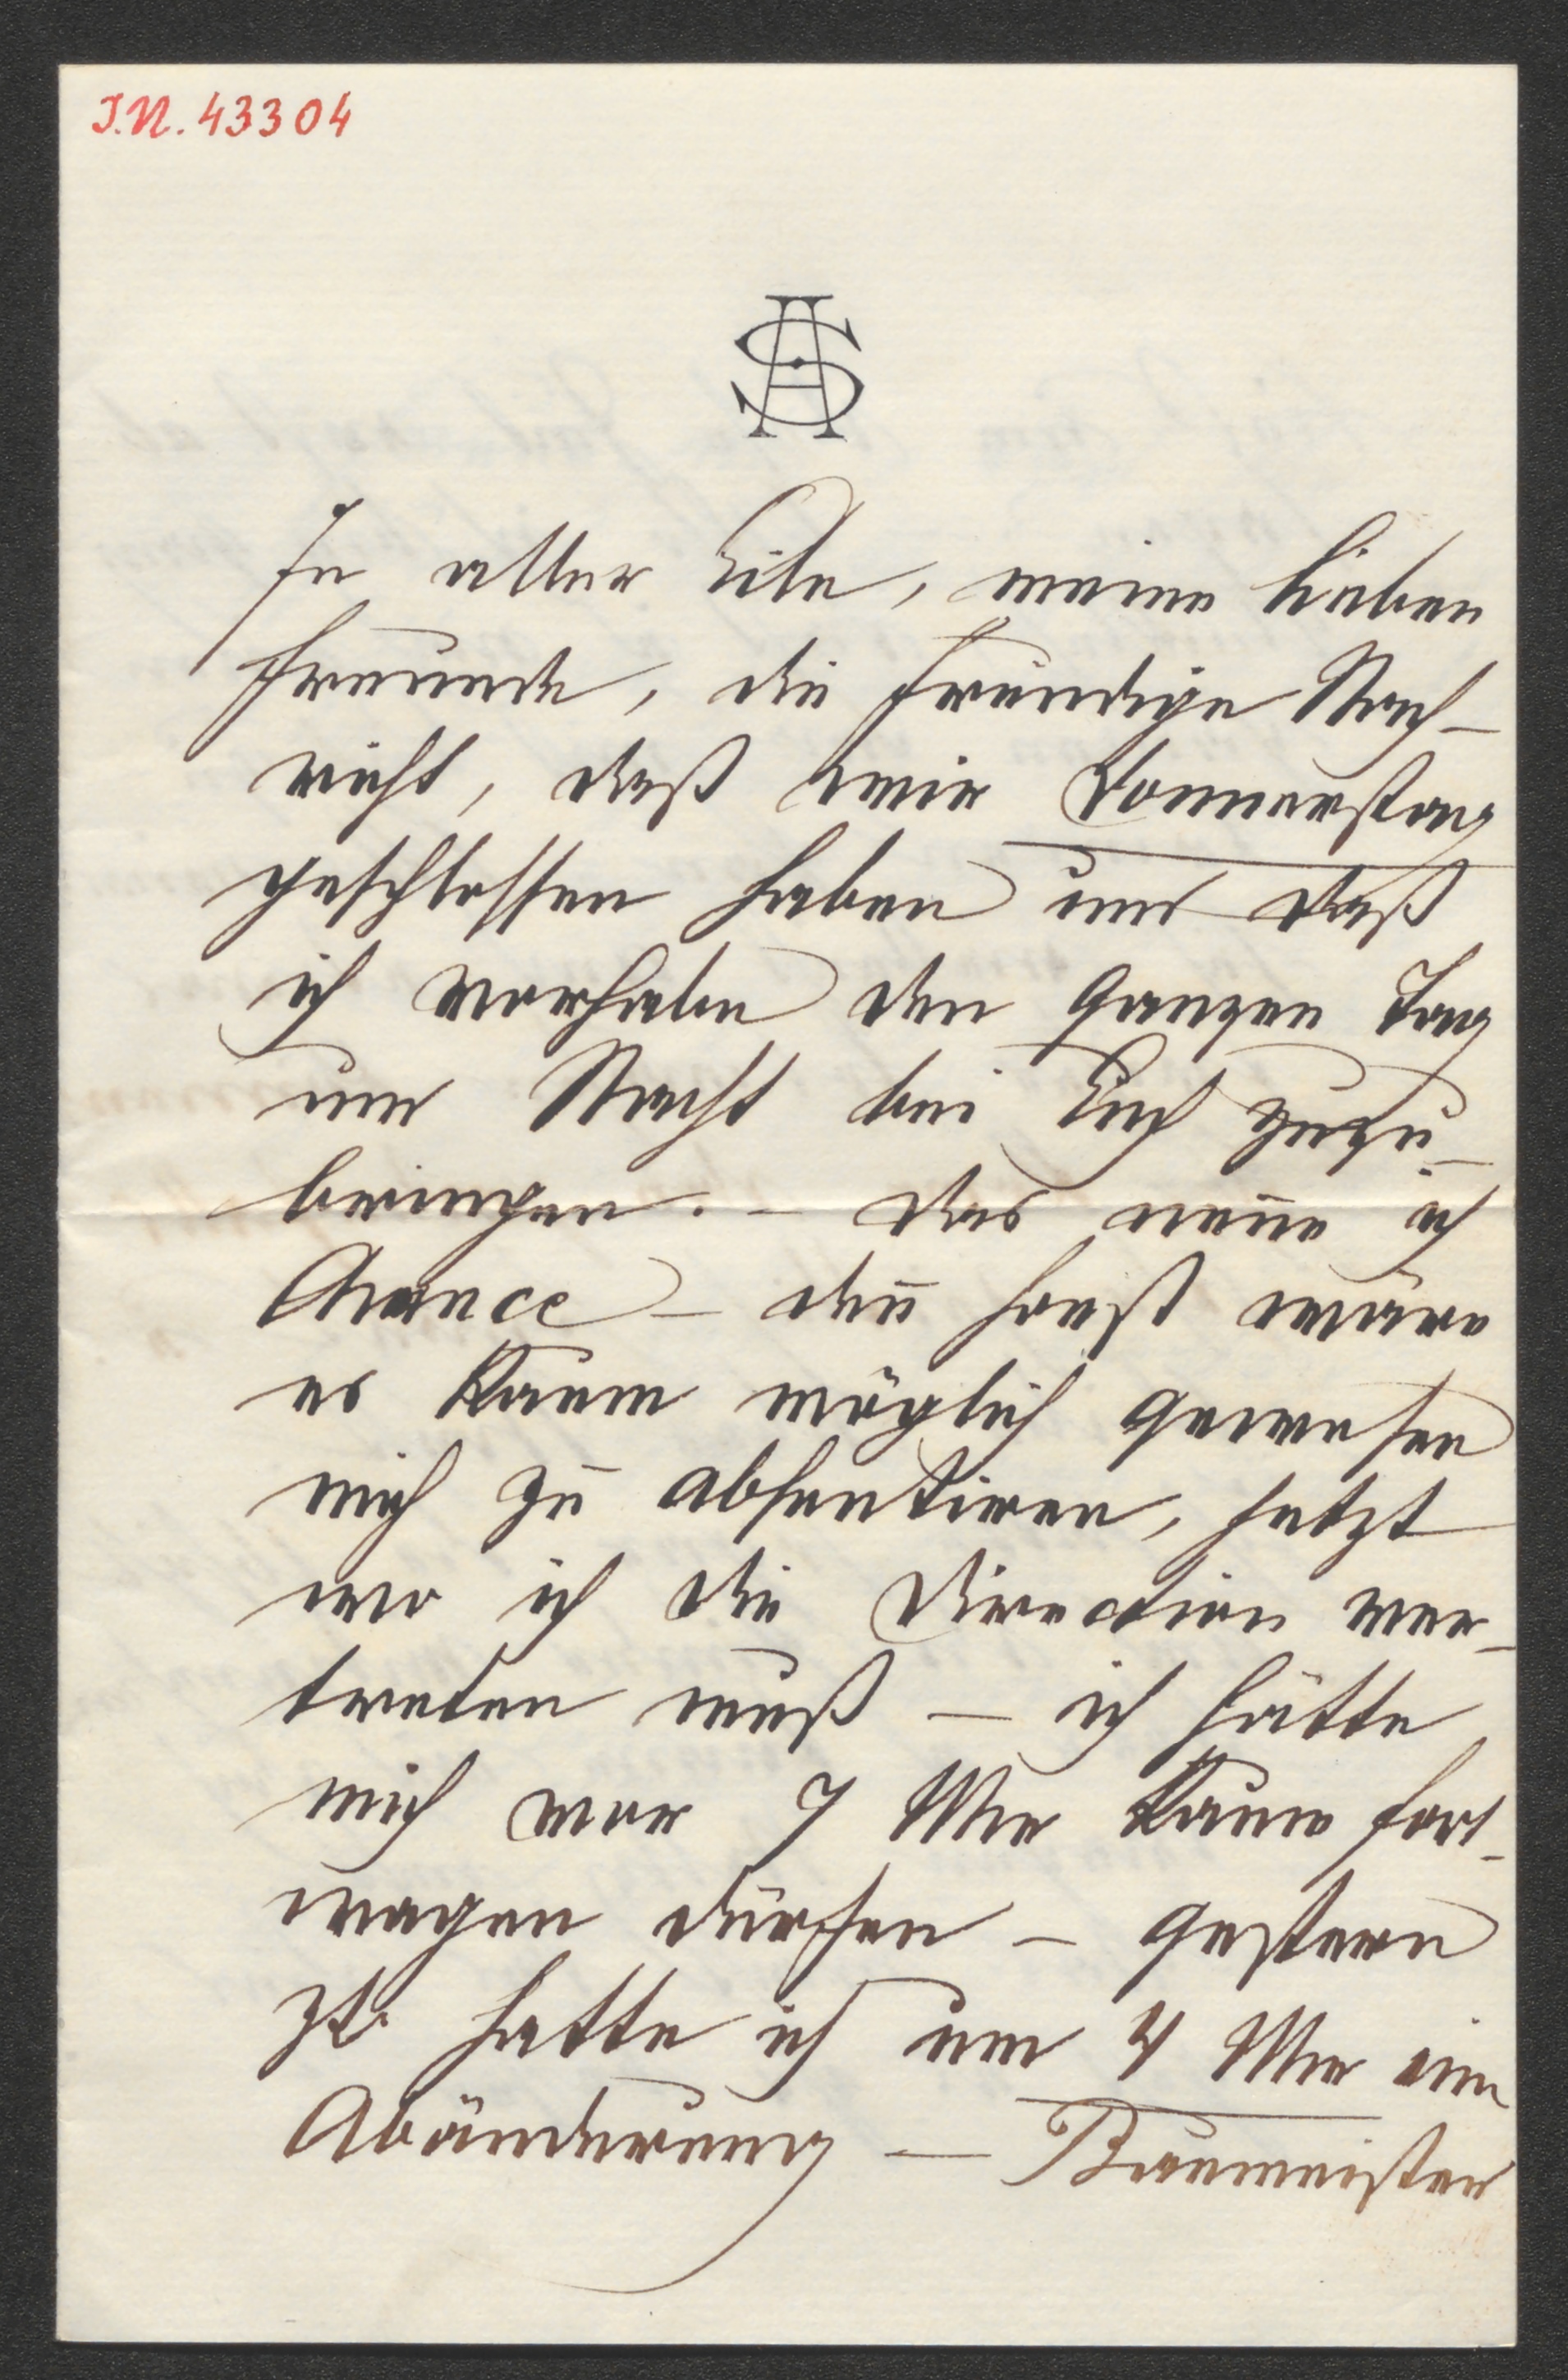 I.N. 43304
AS
In aller Eile, meine lieben
Freunde, die freudige Nach-
richt, daß wir Donnerstag
geschlossen haben und daß
ich vorhabe den ganzen Tag
und Nacht bei Euch zuzu-
bringen. – das neñe ich
Chance – deñ sonst wäre
es kaum möglich gewesen
mich zu absentiren, jetzt
wo ich die Direction ver-
treten muß – ich hätte
mich vor 7 Uhr kaum fort-
wagen dürfen – gestern
zB. hatte ich um 4 Uhr eine
Abänderung – Baumeister